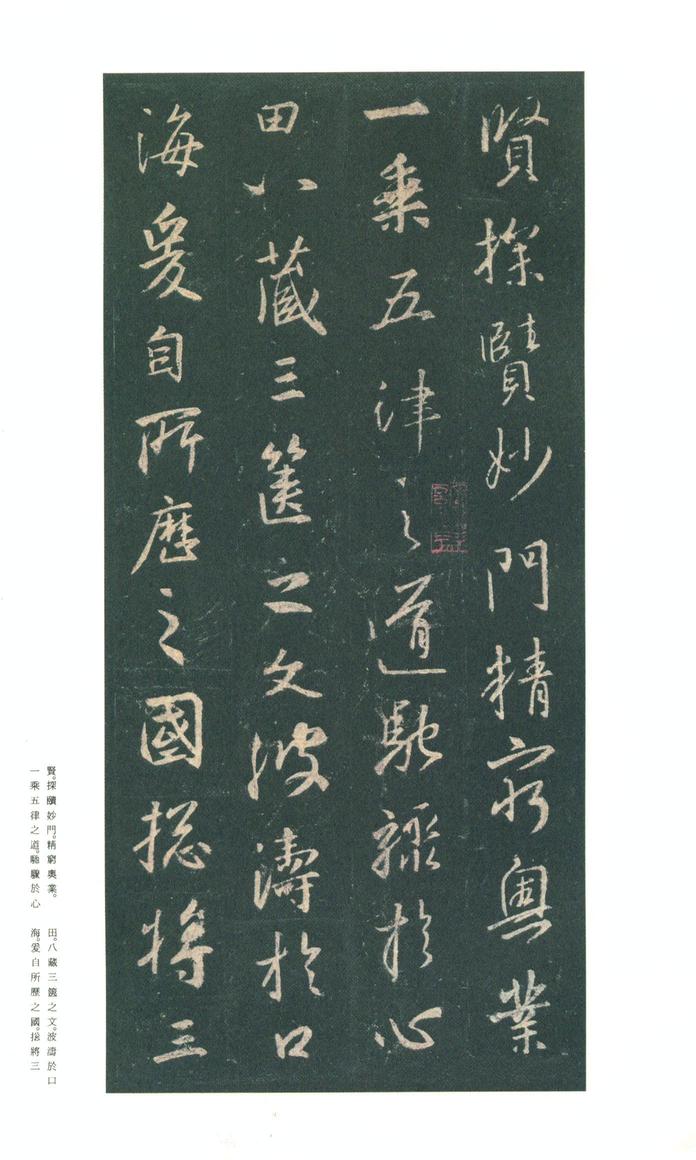 賢探賾妙門精窮奧業
一乘五律之道馳驟於心
田八藏三篋之文波濤於口
海爰自所歷之國捴將三
賢。探賾妙門。精窮奧業。
一乘五律之道。馳驟於心
田。八藏三篋之文。波濤於口
海。爰自所歷之國。捴將三